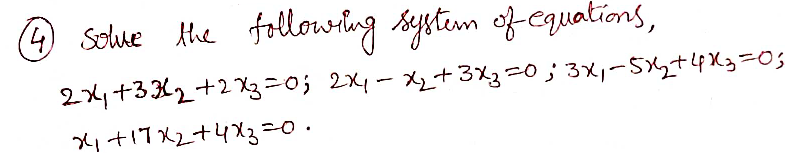 ④ Solve the following system of equations,
2x₁+3x₂+2x₃=0; 2x₁-x₂+3x₃=0; 3x₁-5x₂+4x₃=0;
x₁+17x₂+4x₃=0.